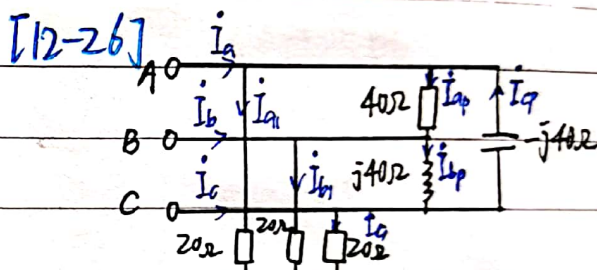 [12-26]
İa
A
İa1
40Ω
İap
İcp
-j40Ω
İb
B
İb1
j40Ω
İbp
İc
C
20Ω
20Ω
İc1
20Ω